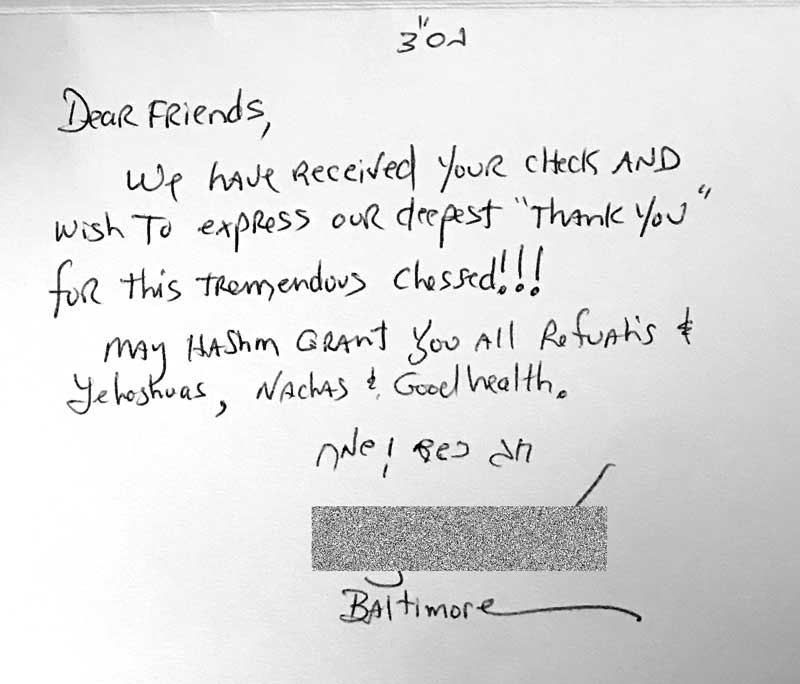 בס"ד
Dear Friends,
We have received your check and
wish to express our deepest "Thank you"
for this tremendous chessed!!!
May Hashm grant you all Refuahis &
Yehoshuas, Nachas & Good health.
חג כשר ושמח
Baltimore